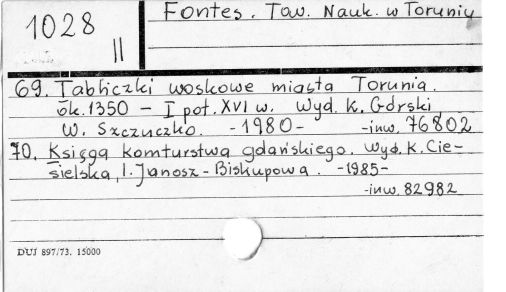 1028
II
Fontes. Tow. Nauk. w Toruniu
69. Tabliczki woskowe miasta Torunia.
ok. 1350 – I poł. XVI w. Wyd. K. Górski,
W. Szczuczko. -1980- -inw. 76802
70. Księga komturstwa gdańskiego. Wyd. K. Cie-
sielska, I. Janosz-Biskupowa. -1985-
-inw. 82982
DUJ 897/73. 15000